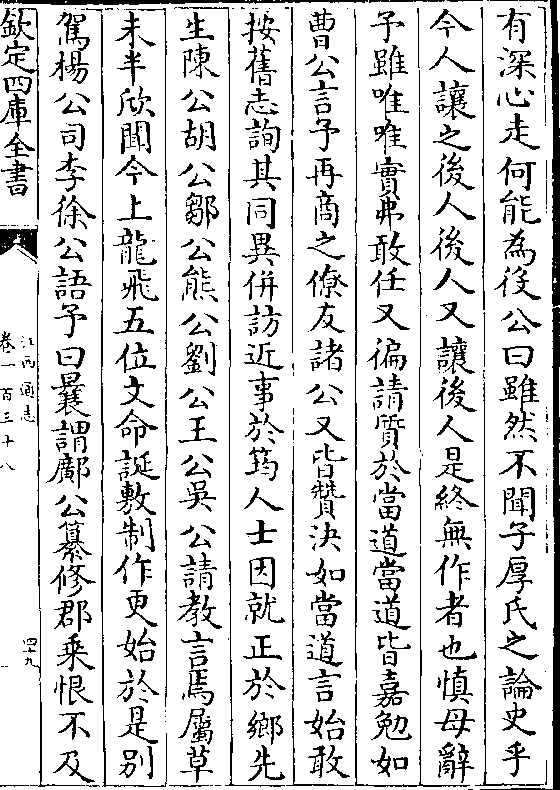 有深心走何能為役公曰雖然不聞子厚氏之論史乎
今人讓之後人後人又讓後人是終無作者也慎毋辭
予雖唯唯實弗敢任又徧請質於當道當道皆嘉勉如
曹公言予再商之僚友諸公又皆贊決如當道言始敢
按舊志詢其同異併訪近事於筠人士因就正於鄉先
生陳公胡公鄒公熊公劉公王公吳公請教言焉屬草
未半欣聞今上龍飛五位文命誕敷制作更始於是別
駕楊公司李徐公語予曰曩謂鄺公纂修郡乘恨不及
欽定四庫全書
江西通志
卷一百三十八
四十九